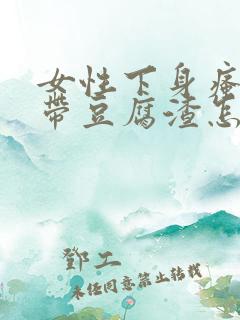 女性下身瘙
带豆腐渣怎
鄧工
未经同意禁止转载